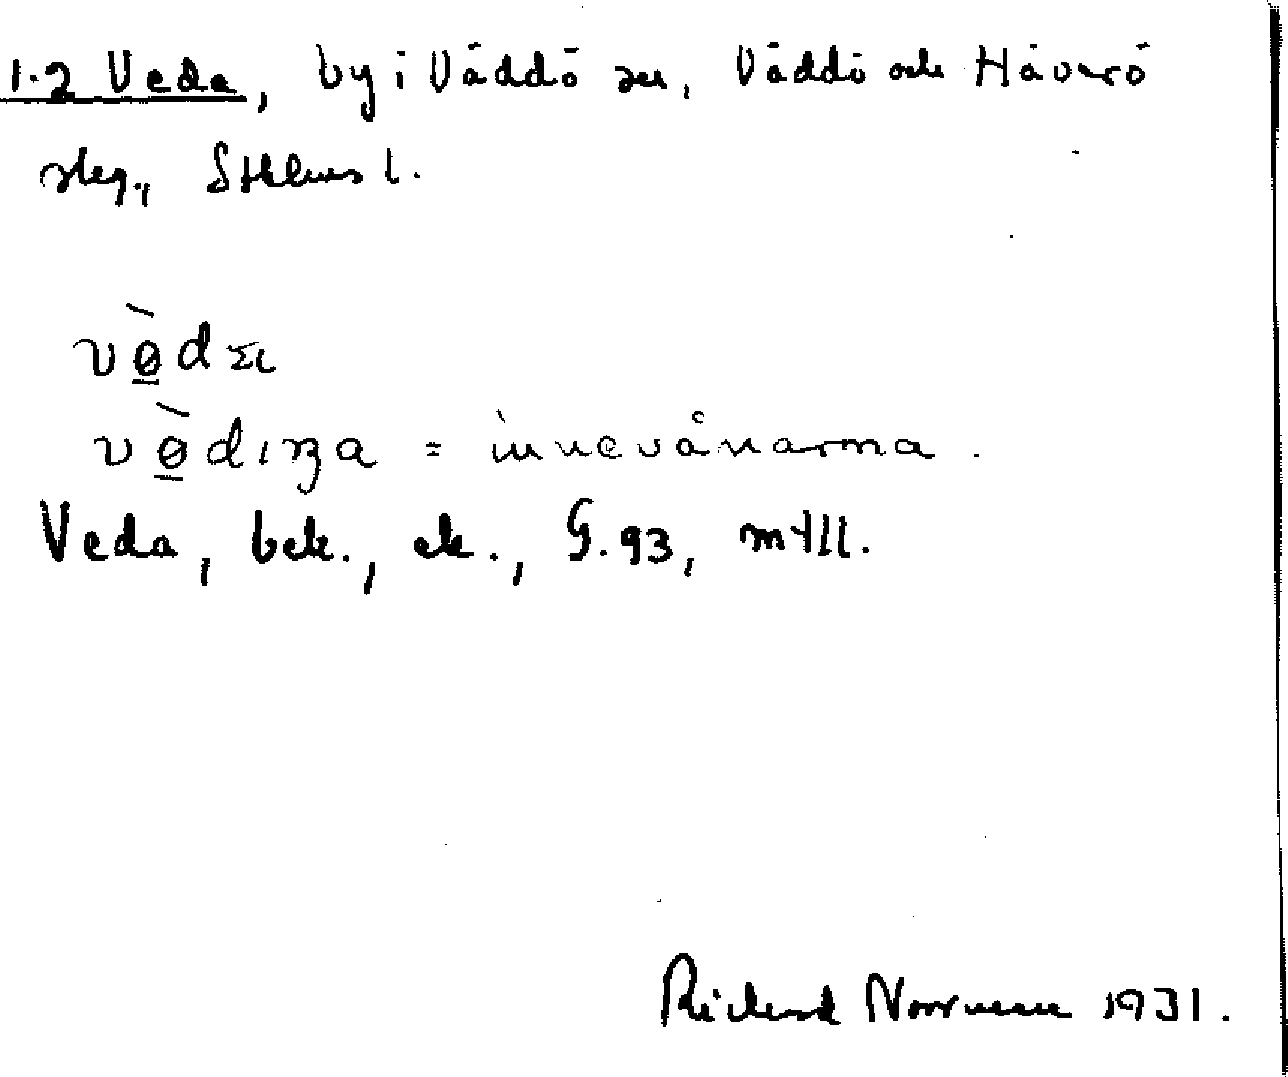 1.2 Veda, by i Väddö sn, Väddö och Häverö
slg., Sthlms l.
vè̱dα
vè̱dιƞa = ìnnevånarna.
Veda, bek., ek., G.93, mtll.
Richard Norrman 1931.